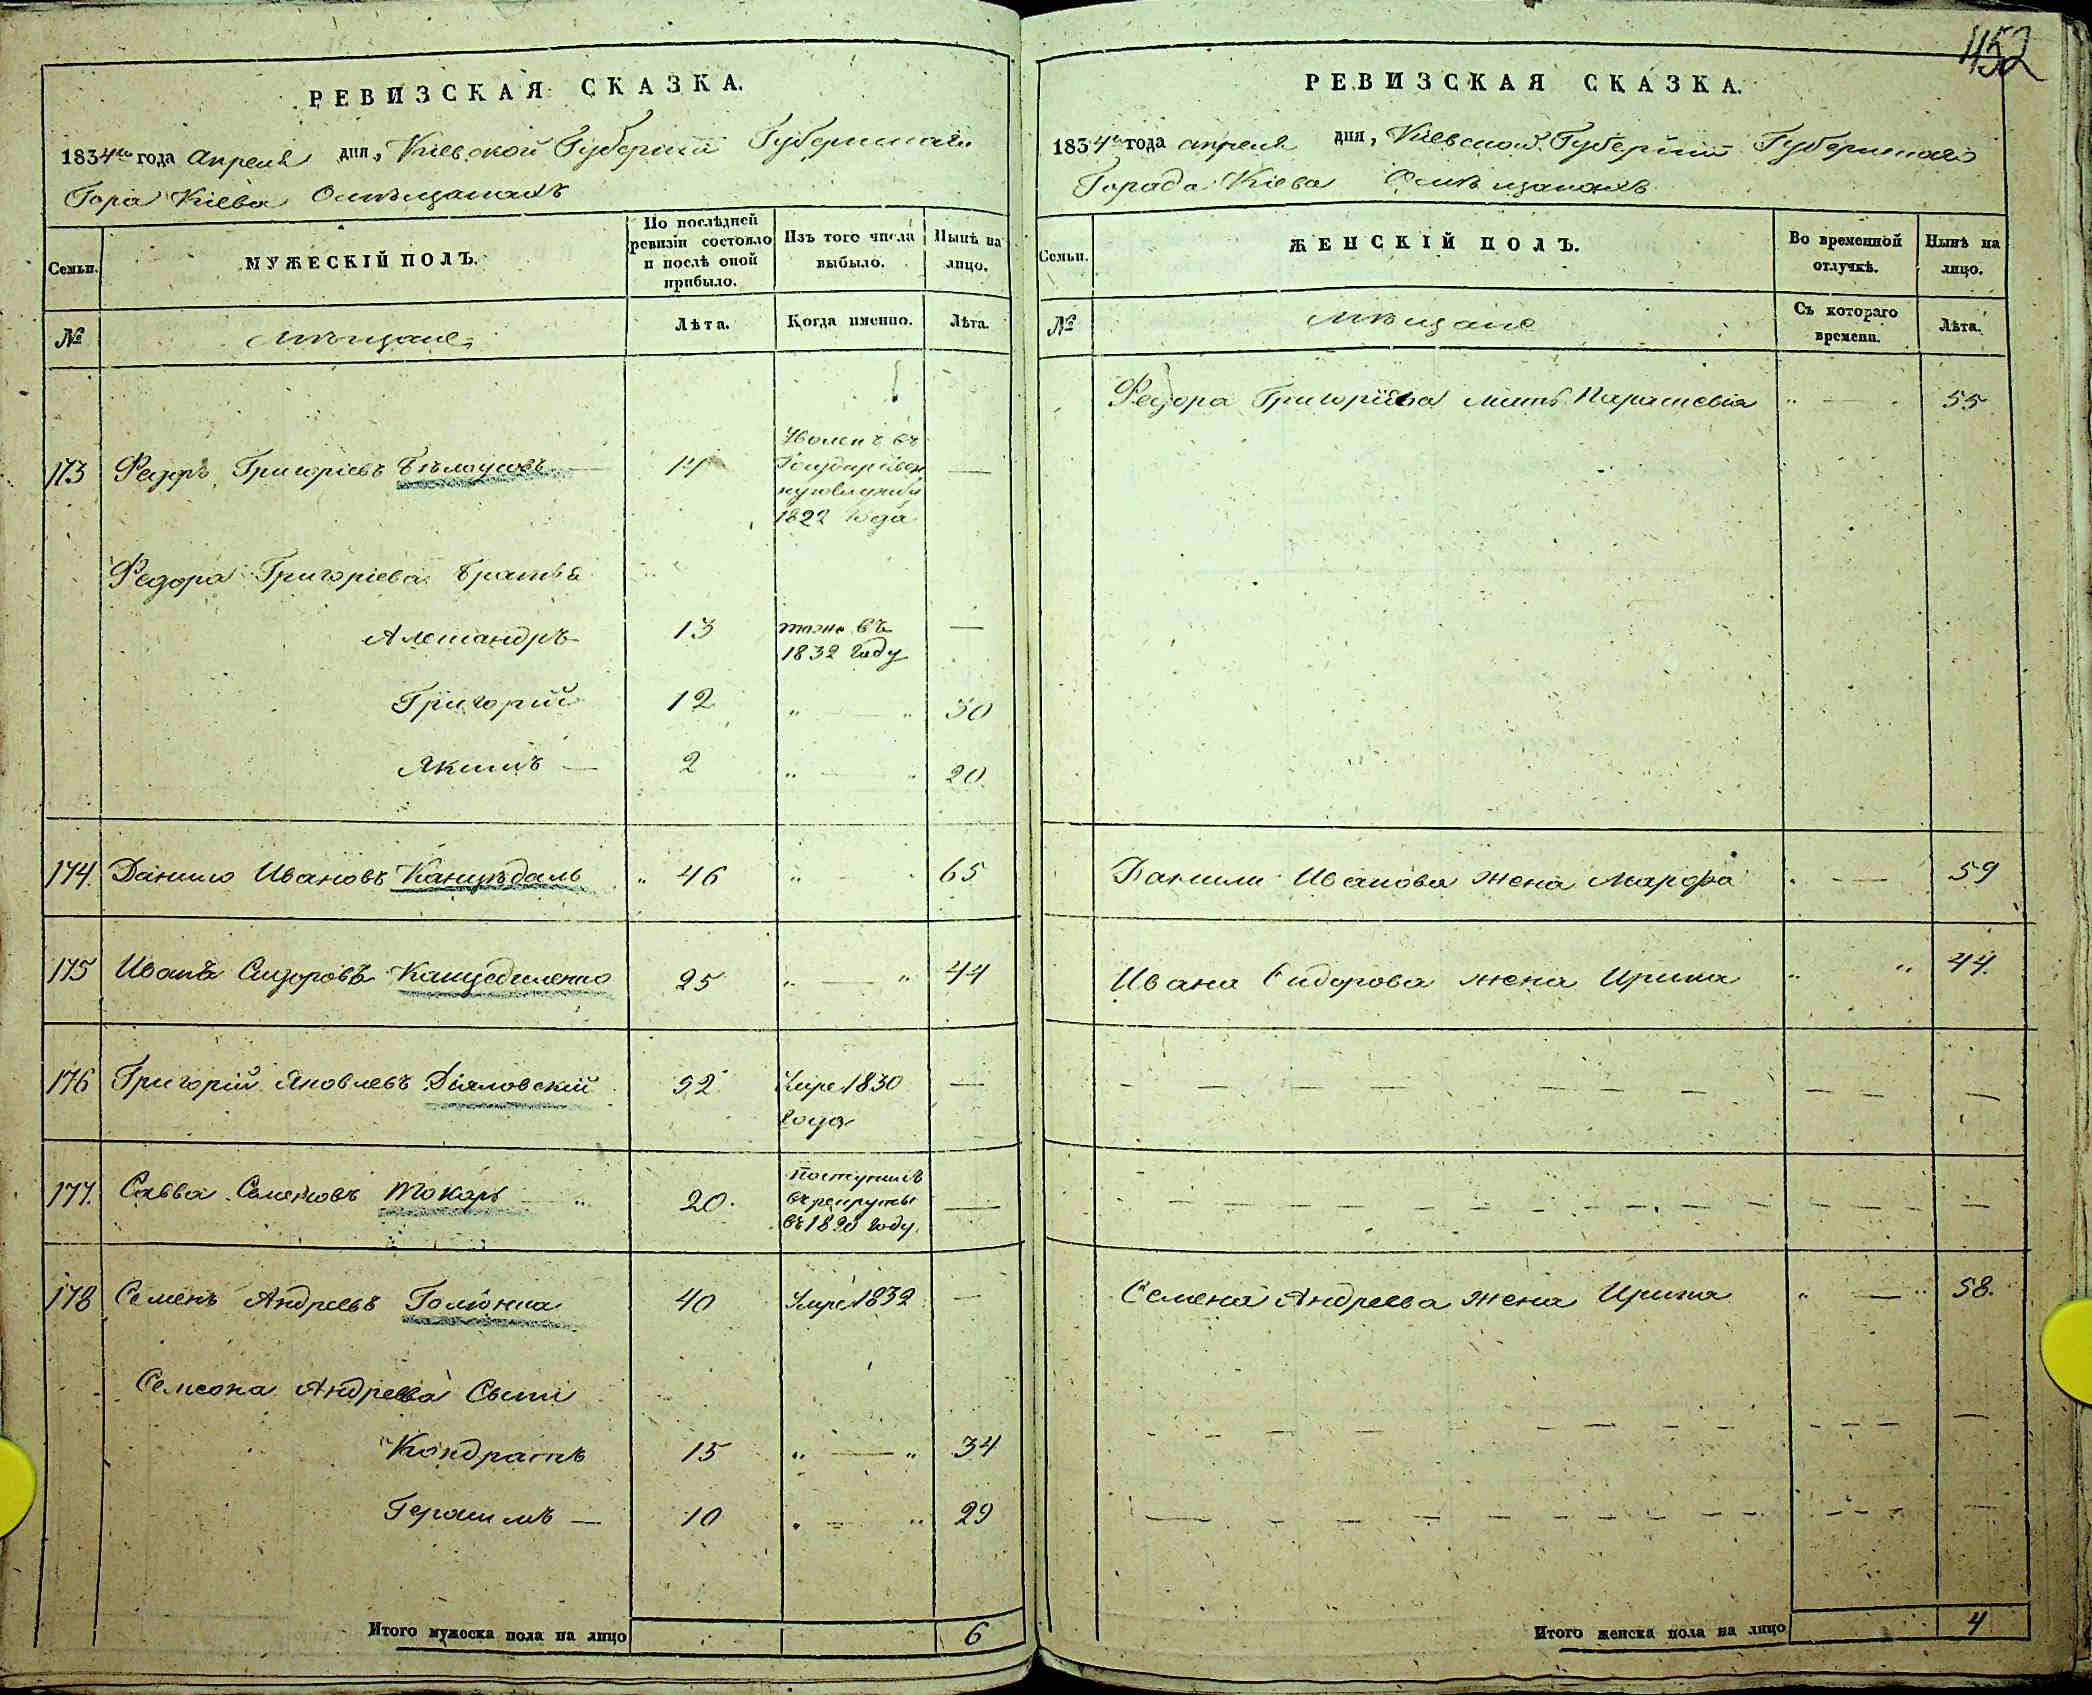 РЕВИЗСКАЯ СКАЗКА.
1834го года апреля дня, Кіевской Губерніи Губернскаго
Гора Кіева О мѣщанахъ
Семьи.
МУЖЕСКІЙ ПОЛЪ.
По послѣдней ревизіи состояло и послѣ оной прибыло.
Изъ того числа выбыло.
Нынѣ на лицо.
№
мѣщане
Лѣта.
Когда именно.
Лѣта.
173 Федоръ Григоріевъ Бѣлаусовъ — 14 —
1822 года
Федора Григоріева братья
Александръ 13 тоже въ —
1832 году
Григорій 12 " — " 30
Якимъ — 2 " — " 20
174. Данило Ивановъ Канцѣдаль " 46 " — " 65
175 Иванъ Сидоровъ Канцедаленко 25 " — " 44
176 Григорій Яковлевъ 52 Умре 1830 —
года
177. Савва Семеновъ Токарь " 20. Поступилъ
въ рекруты —
въ 18 году.
178 Семенъ Андреевъ 40 Умре 1832 —
Семена Андреева Сыны
Кондратъ 15 " — " 34
Герасимъ — 10 " — " 29
Итого мужеска пола на лицо 6
452
РЕВИЗСКАЯ СКАЗКА.
1834го года апреля дня, Кіевской Губерніи Губернскаго
Города Кіева О мѣщанахъ
Семьи.
ЖЕНСКІЙ ПОЛЪ.
Во временной отлучкѣ.
Нынѣ на лицо.
№
мѣщане
Съ котораго времени.
Лѣта.
Федора Григоріева мать Параскевія " — " 55
Данилы Иванова жена Марфа " — 59
Ивана Сидорова жена Ирина " " 44.
Семена Андреева жена Ирина " — " 58.
Итого женска пола на лицо 4